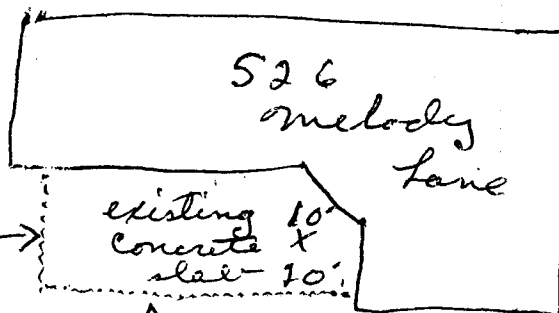 526
Melody
Lane
existing 10'
concrete X
slab 10'